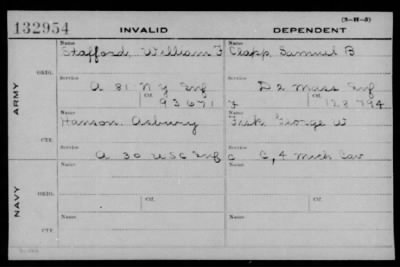 (3-H-3)
132954 INVALID DEPENDENT
Name Name
Stafford, William F Clapp Samuel B
ARMY
ORIG. Service Service
A 81 N Y Inf D 2 Mass Inf
Ctf. Ctf.
93671 128794
Name Name
Hanson Asbury Fisk George W
CTF. Service Service
A 30 USC Inf C, 4 Mich Cav
NAVY
Name Name
ORIG. Service Ctf. Service Ctf.
Name Name
CTF. Service Service